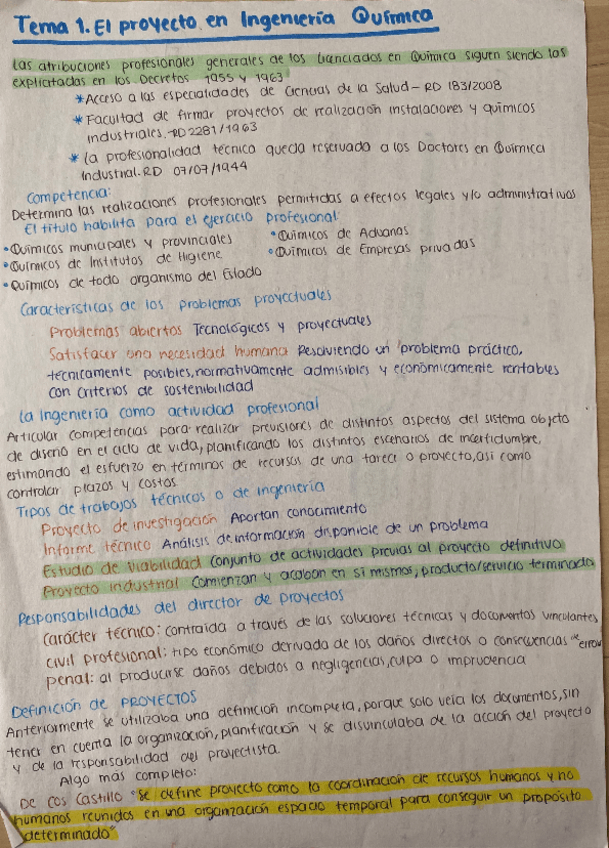 Tema 1. El proyecto en Ingeniería Química
Las atribuciones profesionales generales de los Licenciados en Química siguen siendo las
explicitadas en los Decretos 1955 y 1963
* Acceso a las especialidades de Ciencias de la Salud - RD 183/2008
* Facultad de firmar proyectos de realización instalaciones y químicos
industriales. RD 2281/1963
* La profesionalidad técnica queda reservada a los Doctores en Química
Industrial. RD 07/07/1944
Competencia:
Determina las realizaciones profesionales permitidas a efectos legales y/o administrativos
El título habilita para el ejercicio profesional:
• Químicos municipales y provinciales
• Químicos de Institutos de Higiene
• Químicos de todo organismo del Estado
• Químicos de Aduanas
• Químicos de Empresas privadas
Características de los problemas proyectuales
Problemas abiertos Tecnológicos y proyectuales
Satisfacer una necesidad humana Resolviendo un problema práctico,
técnicamente posibles, normativamente admisibles y económicamente rentables
con criterios de sostenibilidad
La Ingeniería como actividad profesional
Articular competencias para realizar previsiones de distintos aspectos del sistema objeto
de diseño en el ciclo de vida, planificando los distintos escenarios de incertidumbre,
estimando el esfuerzo en términos de recursos de una tarea o proyecto, así como
controlar plazos y costos
Tipos de trabajos técnicos o de ingeniería
Proyecto de investigación Aportan conocimiento
Informe técnico Análisis de información disponible de un problema
Estudio de viabilidad Conjunto de actividades previas al proyecto definitivo
Proyecto industrial Comienzan y acaban en si mismos, producto/servicio terminado
Responsabilidades del director de Proyectos
Carácter técnico: contraída a través de las soluciones técnicas y documentos vinculantes
Civil profesional: tipo económico derivada de los daños directos o consecuencias de error
Penal: al producirse daños debidos a negligencias, culpa o imprudencia
Definición de PROYECTOS
Anteriormente se utilizaba una definición incompleta, porque solo veía los documentos, sin
tener en cuenta la organización, planificación y se disvinculaba de la acción del proyecto
y de la responsabilidad del proyectista.
Algo más completo:
De Cos Castillo "se define proyecto como la coordinación de recursos humanos y no
humanos reunidos en una organización espacio temporal para conseguir un propósito
determinado"